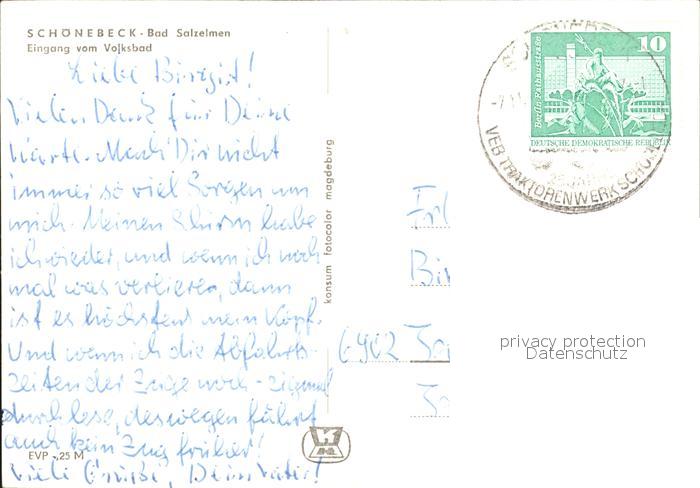 SCHÖNEBECK - Bad Salzelmen
Eingang vom Volksbad
Liebe Birgit!
Vielen Dank für Deine
Karte. Mach Dir nicht
immer so viel Sorgen um
mich. Meinen Schirm habe
ich wieder, und wenn ich noch
mal was verliere, dann
ist es höchstens mein Kopf.
Und wenn ich die Abfahrts-
zeiten der Züge noch -zigmal
durchlese, deswegen fährt
auch kein Zug früher!
Viele Grüße, Dein Vater!
EVP -,25 M
konsum fotocolor magdeburg
Bir
6902
10
Berlin, Rathausstraße
DEUTSCHE DEMOKRATISCHE REPUBLIK
VEB TRAKTORENWERK SCHÖ
privacy protection
Datenschutz